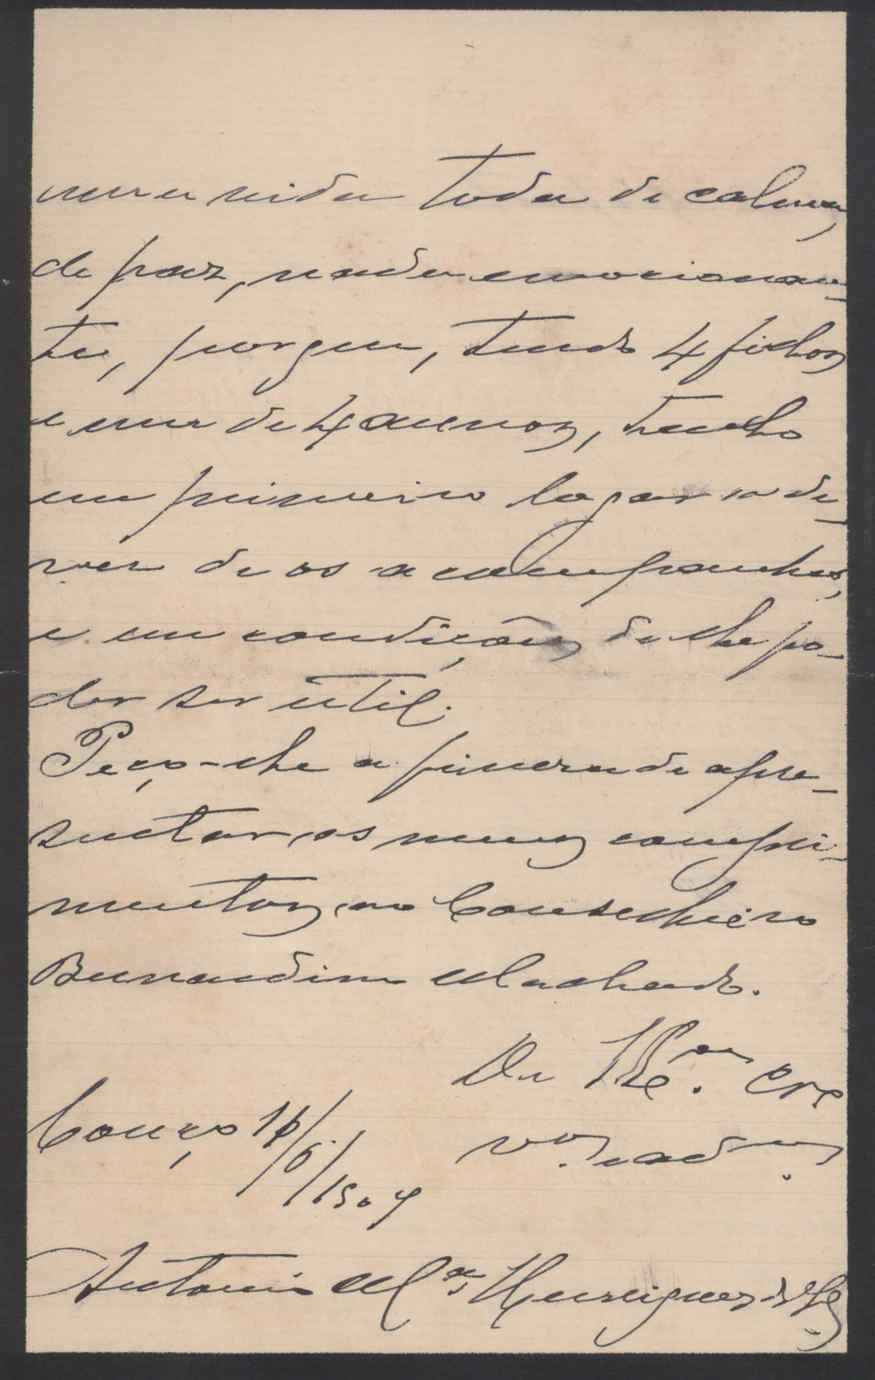 numa vida toda de calma,
de paz, nada emocionan-
te, porque, tendo 4 filhos
e um de 4 annos, tenho
em primeiro logar o de-
ver de os acompanhar,
e em condições de lhe po-
der ser util.
Peço-lhe a fineza de apre-
sentar os meus compri-
mentos ao Conselheiro
Bernardino Machado.
De V. Ex.a
Couço 16/6/1907
Antonio M.es Henriques da